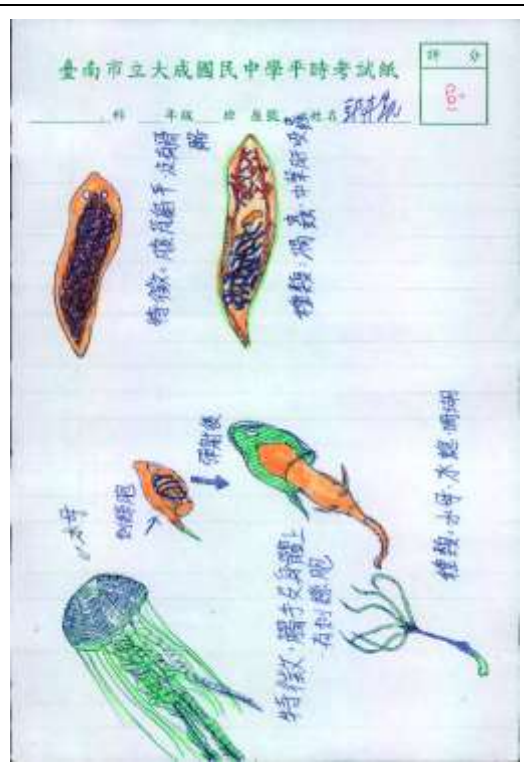 臺南市立大成國民中學平時考試紙
評 分
科 年級 班 座號 姓名
特徵:身體扁平,沒有
種類:渦蟲、中華肝吸蟲
水母
刺絲胞
彈射後
特徵:觸手及身體上
有刺絲胞
種類:水母、水螅、珊瑚